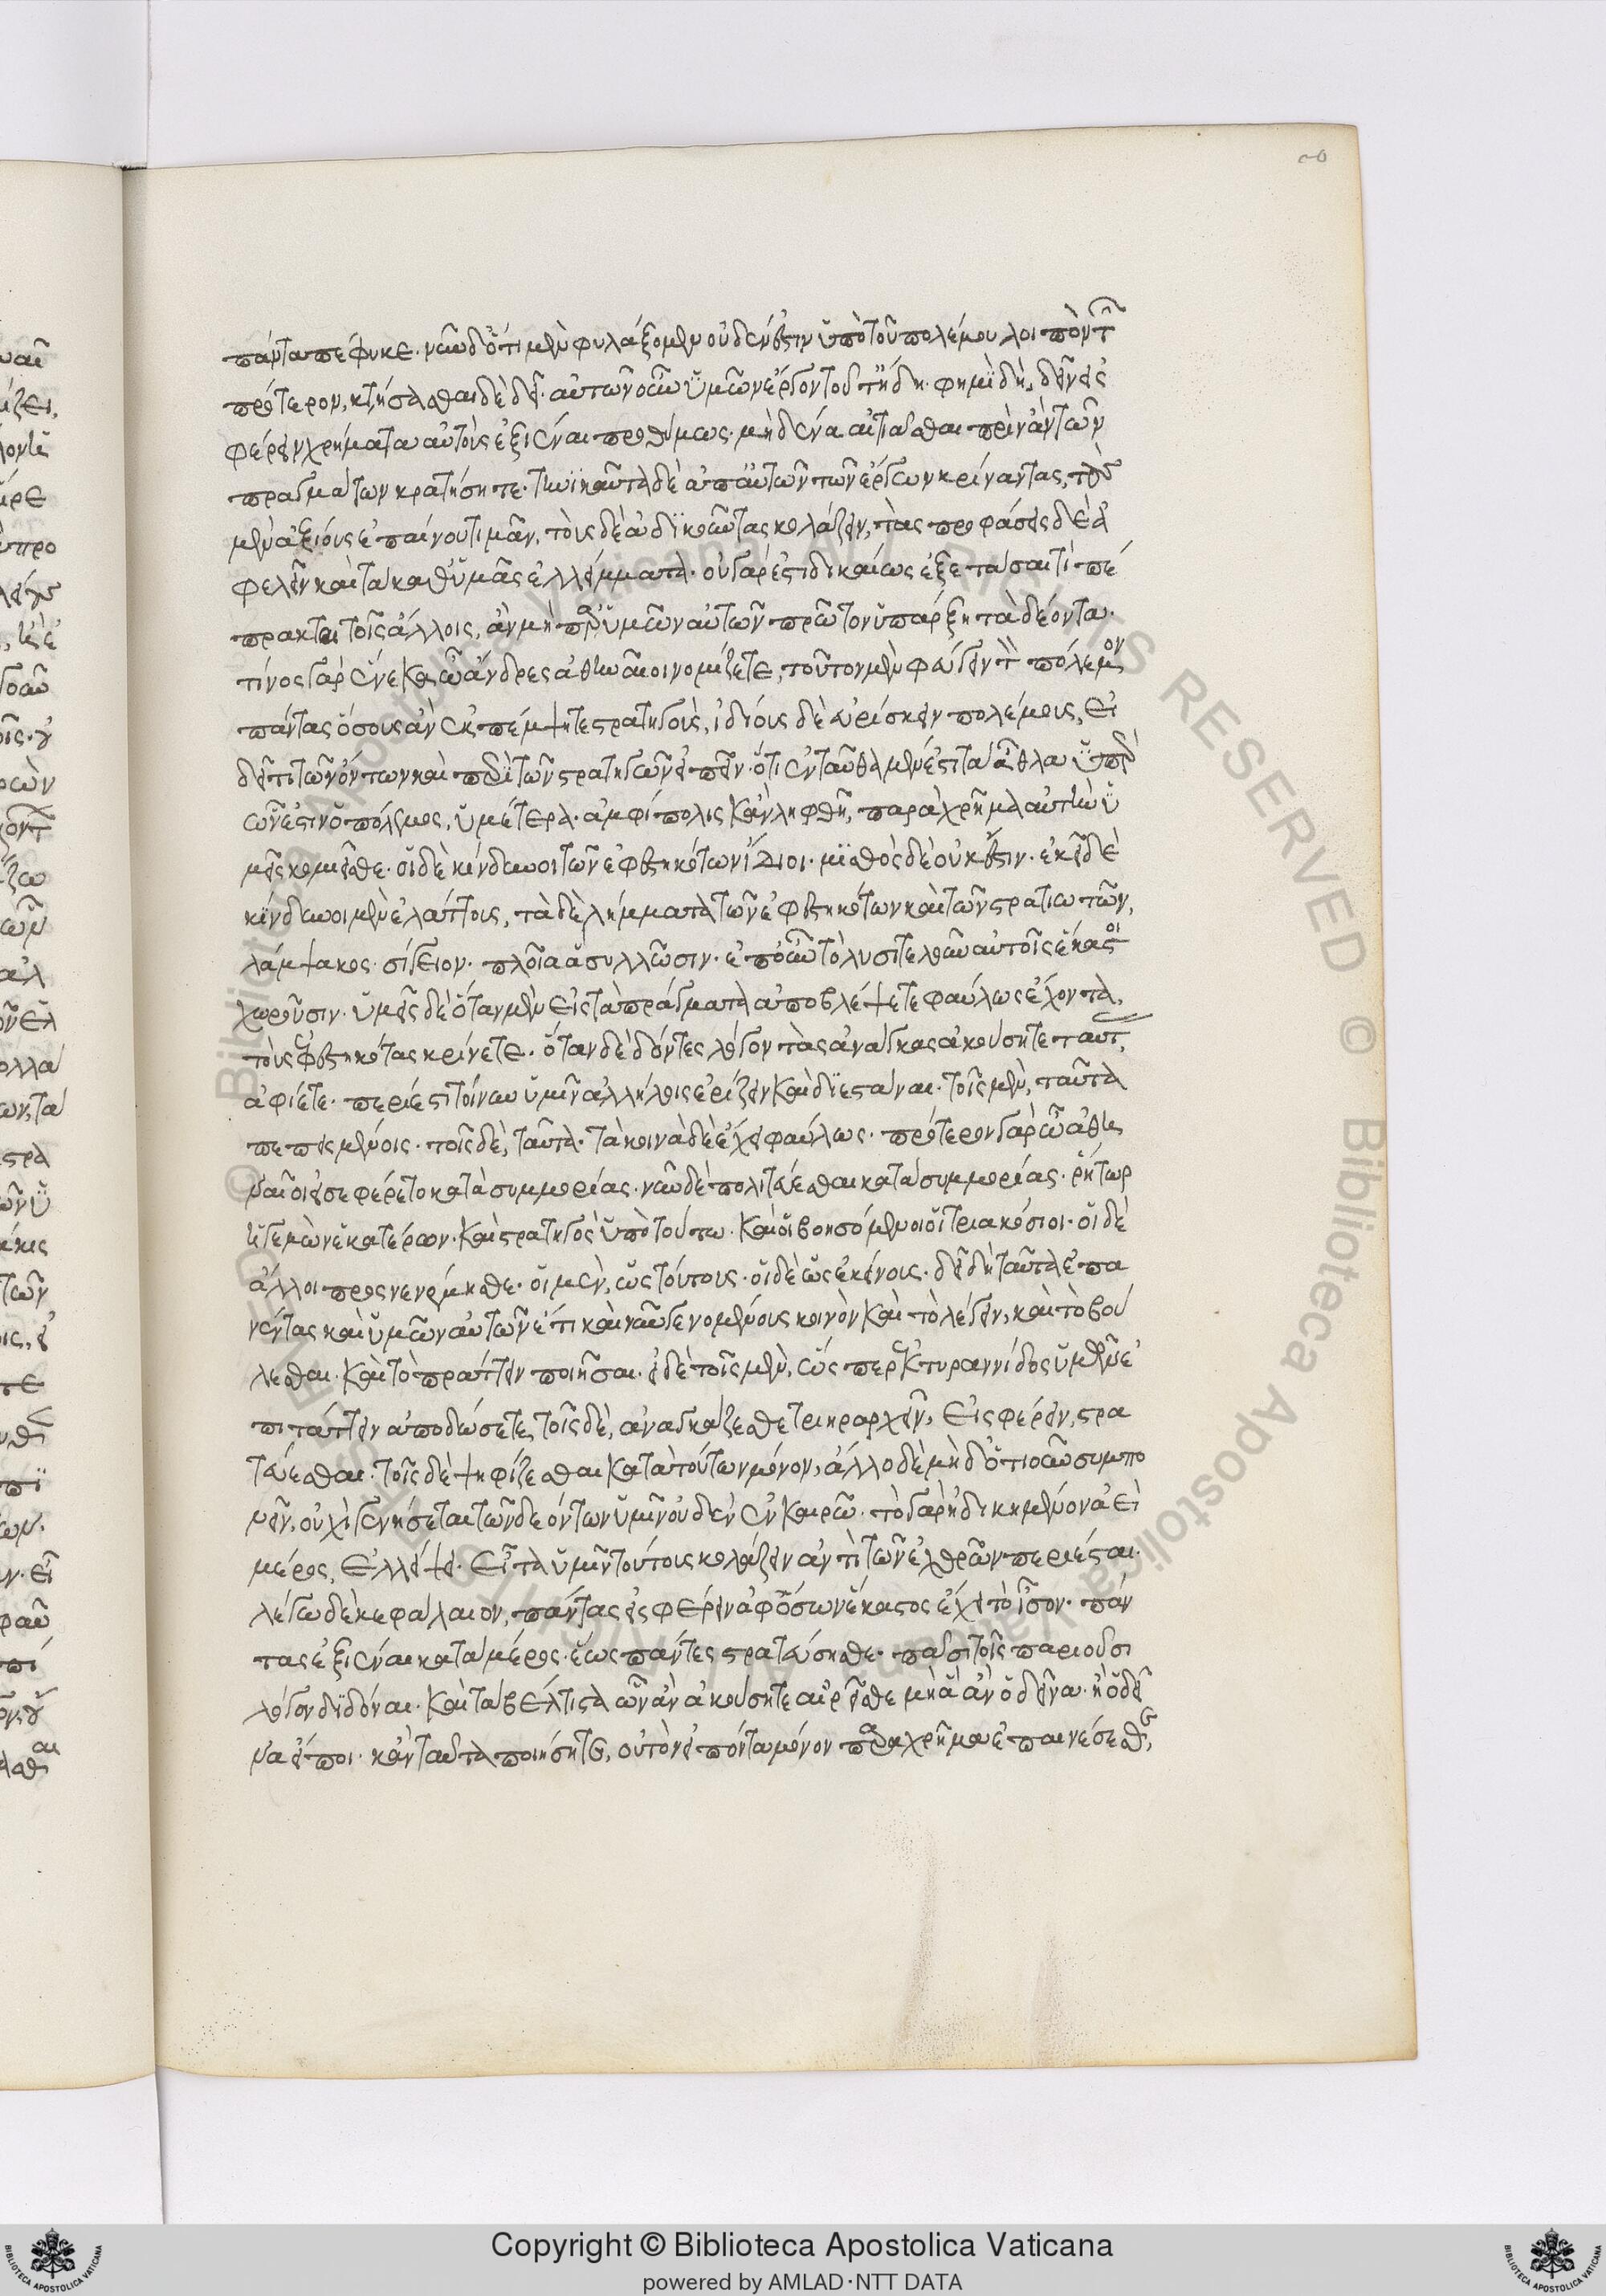 πάντα πέφυκε. νῦν δ' ὅτι μὲν φυλάξομεν οὐδέν ἐστιν ὑπὸ τοῦ πολέμου λοιπὸν τῶν
πρότερον, κτήσασθαι δὲ δεῖ. αὐτῶν οὖν ὑμῶν ἔργον τοῦτ' ἤδη. φημὶ δὴ, δεῖν εἰσ
φέρειν χρήματα αὐτοὺς ἐξιέναι προθύμως. μηδένα αἰτιᾶσθαι πρὶν ἂν τῶν
πραγμάτων κρατήσητε. τηνικαῦτα δὲ ἀπ' αὐτῶν τῶν ἔργων κρίναντας, τοὺς
μὲν ἀξίους ἐπαίνου τιμᾶν, τοὺς δὲ ἀδικοῦντας κολάζειν, τὰς προφάσεις δὲ ἀ
φελεῖν καὶ τὰ καθ' ὑμᾶς ἐλλείμματα. οὐ γάρ ἐστι δικαίως ἐξετάσαι τί πέ
πρακται τοῖς ἄλλοις, ἂν μὴ παρ' ὑμῶν αὐτῶν πρῶτον ὑπάρξῃ τὰ δέοντα.
τίνος γὰρ ἕνεκα ὦ ἄνδρες ἀθηναῖοι νομίζετε, τοῦτον μὲν φεύγειν τὸν πόλεμον
πάντας ὅσους ἂν ἐκπέμψητε στρατηγοὺς, ἰδίους δὲ εὑρίσκειν πολέμους, εἰ
δεῖ τι τῶν ὄντων καὶ περὶ τῶν στρατηγῶν εἰπεῖν. ὅτι ἐνταῦθα μέν ἐστι τὰ ἆθλα ὑπὲρ
ὧν ἐστιν ὁ πόλεμος, ὑμέτερα. ἀμφίπολις κἂν ληφθῇ, παραχρῆμα αὐτὴν ὑ
μεῖς κομιεῖσθε. οἱ δὲ κίνδυνοι τῶν ἐφεστηκότων ἴδιοι. μισθὸς δὲ οὐκ ἔστιν. ἐκεῖ δὲ
κίνδυνοι μὲν ἐλάττους, τὰ δὲ λήμματα τῶν ἐφεστηκότων καὶ τῶν στρατιωτῶν,
λάμψακος. σίγειον. πλοῖα ἃ συλλῶσιν. ἐπ' οὖν τὸ λυσιτελοῦν αὐτοῖς ἕκαστοι
χωροῦσιν. ὑμεῖς δὲ ὅταν μὲν εἰς τὰ πράγματα ἀποβλέψετε φαύλως ἔχοντα,
τοὺς ἐφεστηκότας κρίνετε. ὅταν δὲ δόντες λόγον τὰς ἀνάγκας ἀκούσητε ταύτας,
ἀφίετε. περίεστι τοίνυν ὑμῖν ἀλλήλοις ἐρίζειν καὶ διεστάναι. τοῖς μὲν, ταῦτα
πεπεισμένοις. τοῖς δὲ, ταῦτα. τὰ κοινὰ δὲ ἔχει φαύλως. πρότερον γὰρ ὦ ἀθη
ναῖοι εἰσεφέρετο κατὰ συμμορίας. νῦν δὲ πολιτεύεσθαι κατὰ συμμορίας. ῥήτωρ
ἡγεμὼν ἑκατέρων. καὶ στρατηγὸς ὑπὸ τούτω. καὶ οἱ βοησόμενοι οἱ τριακόσιοι. οἱ δὲ
ἄλλοι προσνενέμησθε. οἱ μὲν, ὡς τούτους. οἱ δὲ ὡς ἐκείνοις. δεῖ δὴ ταῦτα ἐπα
νέντας καὶ ὑμῶν αὐτῶν ἔτι καὶ νῦν γενομένους κοινὸν καὶ τὸ λέγειν, καὶ τὸ βου
λεσθαι. καὶ τὸ πράττειν ποιῆσαι. εἰ δὲ τοῖς μὲν, ὥς περ ἐκ τυραννίδος ὑμῶν ἐ
πιτάττειν ἀποδώσετε, τοῖς δὲ, ἀναγκάζεσθε τριηραρχεῖν, εἰσφέρειν, στρα
τεύεσθαι. τοῖς δὲ ψηφίζεσθαι κατὰ τούτων μόνον, ἄλλο δὲ μηδ' ὁτιοῦν συμπο
νεῖν, οὐχὶ γενήσεται τῶν δεόντων ὑμῖν οὐδὲν ἐν καιρῶ. τὸ γὰρ ἠδικημένον ἀεὶ
μέρος, ἐλλείψει. εἶτα ὑμῖν τούτους κολάζειν ἀντὶ τῶν ἐχθρῶν περιέσται.
λέγω δὲ κεφάλαιον, πάντας εἰσφέρειν ἀφ' ὅσων ἕκαστος ἔχει τὸ ἴσον. πάν
τας ἐξιέναι κατὰ μέρος. ἕως πάντες στρατεύσησθε. πᾶσι τοῖς παριοῦσι
λόγον διδόναι. καὶ τὰ βέλτιστα ὧν ἂν ἀκούσητε αἱρεῖσθε μὴ ἃ ἂν ὁ δεῖνα. ἢ ὁ δεῖ
να εἴποι. κἂν ταῦτα ποιήσητε, οὐ τὸν εἰπόντα μόνον παραχρῆμα ἐπαινέσεσθε,